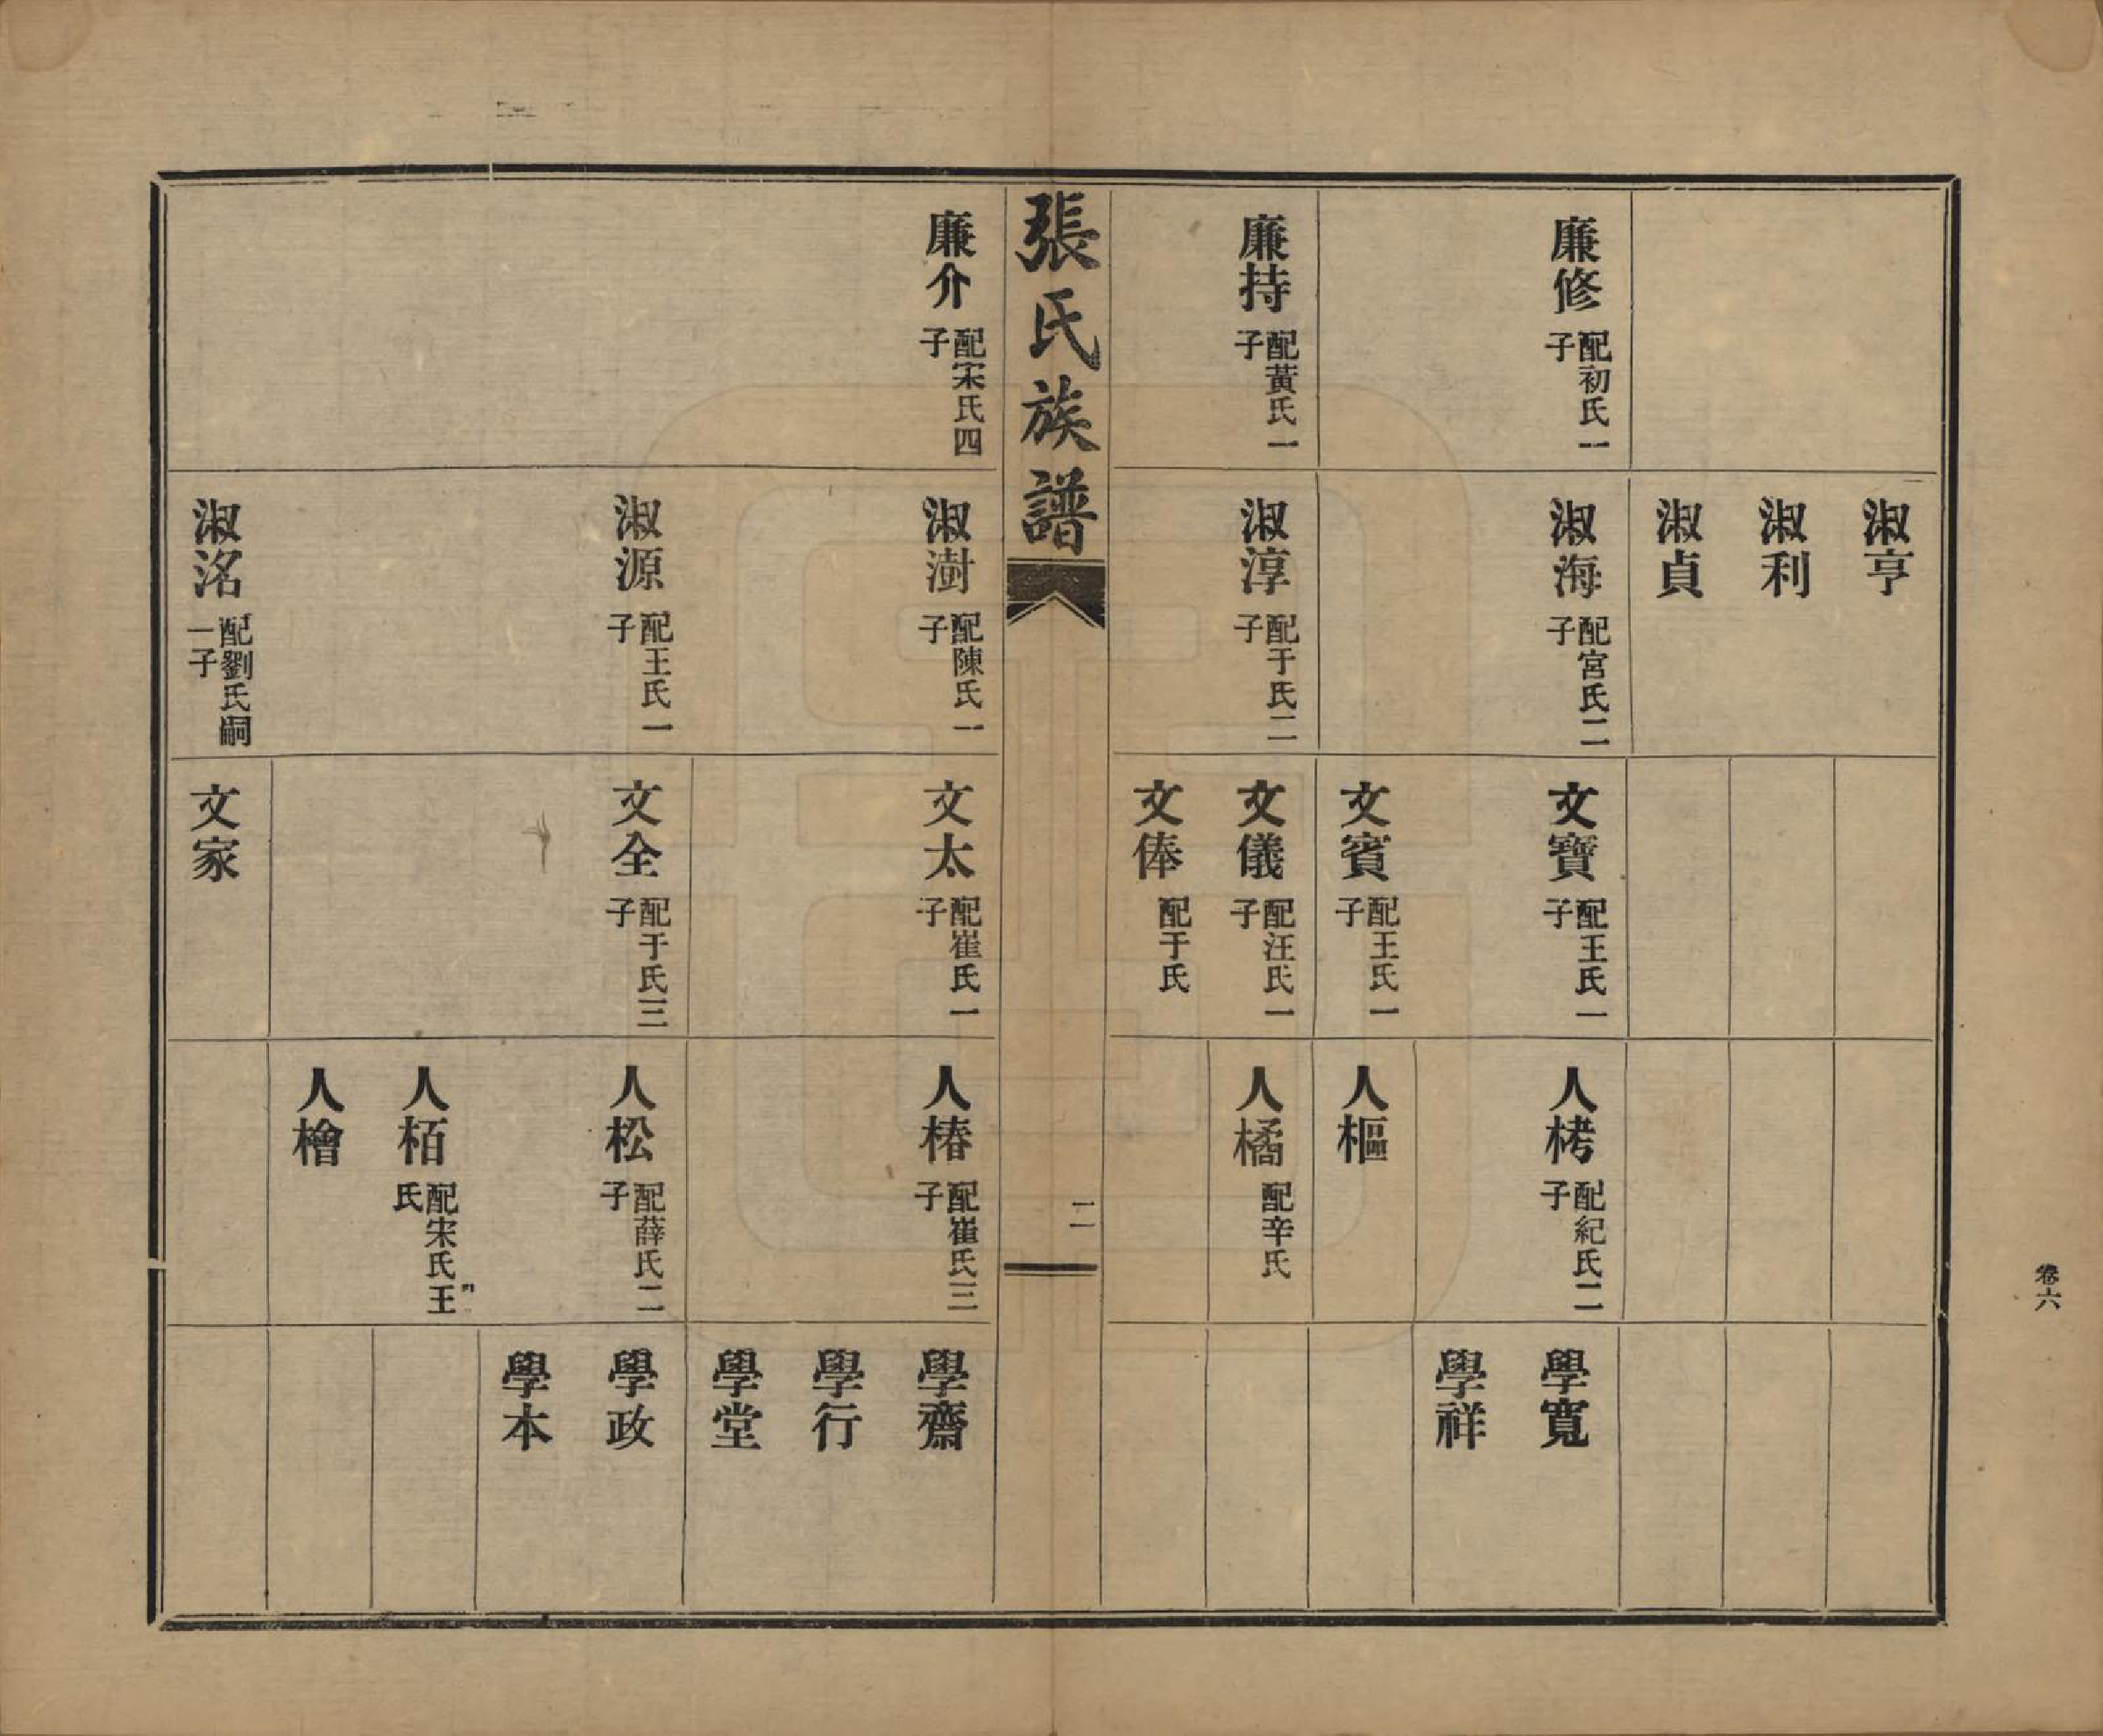 淑亨
淑利
淑貞
廉修 配初氏一子
淑海 配宮氏二子
文寶 配王氏一子
人栲 配紀氏二子
學寬
學祥
文賓 配王氏一子
人樞
廉持 配黃氏一子
淑淳 配于氏二子
文儀 配汪氏一子
人橘 配辛氏
文俸 配于氏
張氏族譜
二
卷六
廉介 配宋氏四子
淑澍 配陳氏一子
文太 配崔氏一子
人椿 配崔氏三子
學齋
學行
學堂
淑源 配王氏一子
文全 配于氏三子
人松 配薛氏二子
學政
學本
人栢 配宋氏王氏
人檜
淑洺 配劉氏嗣一子
文家